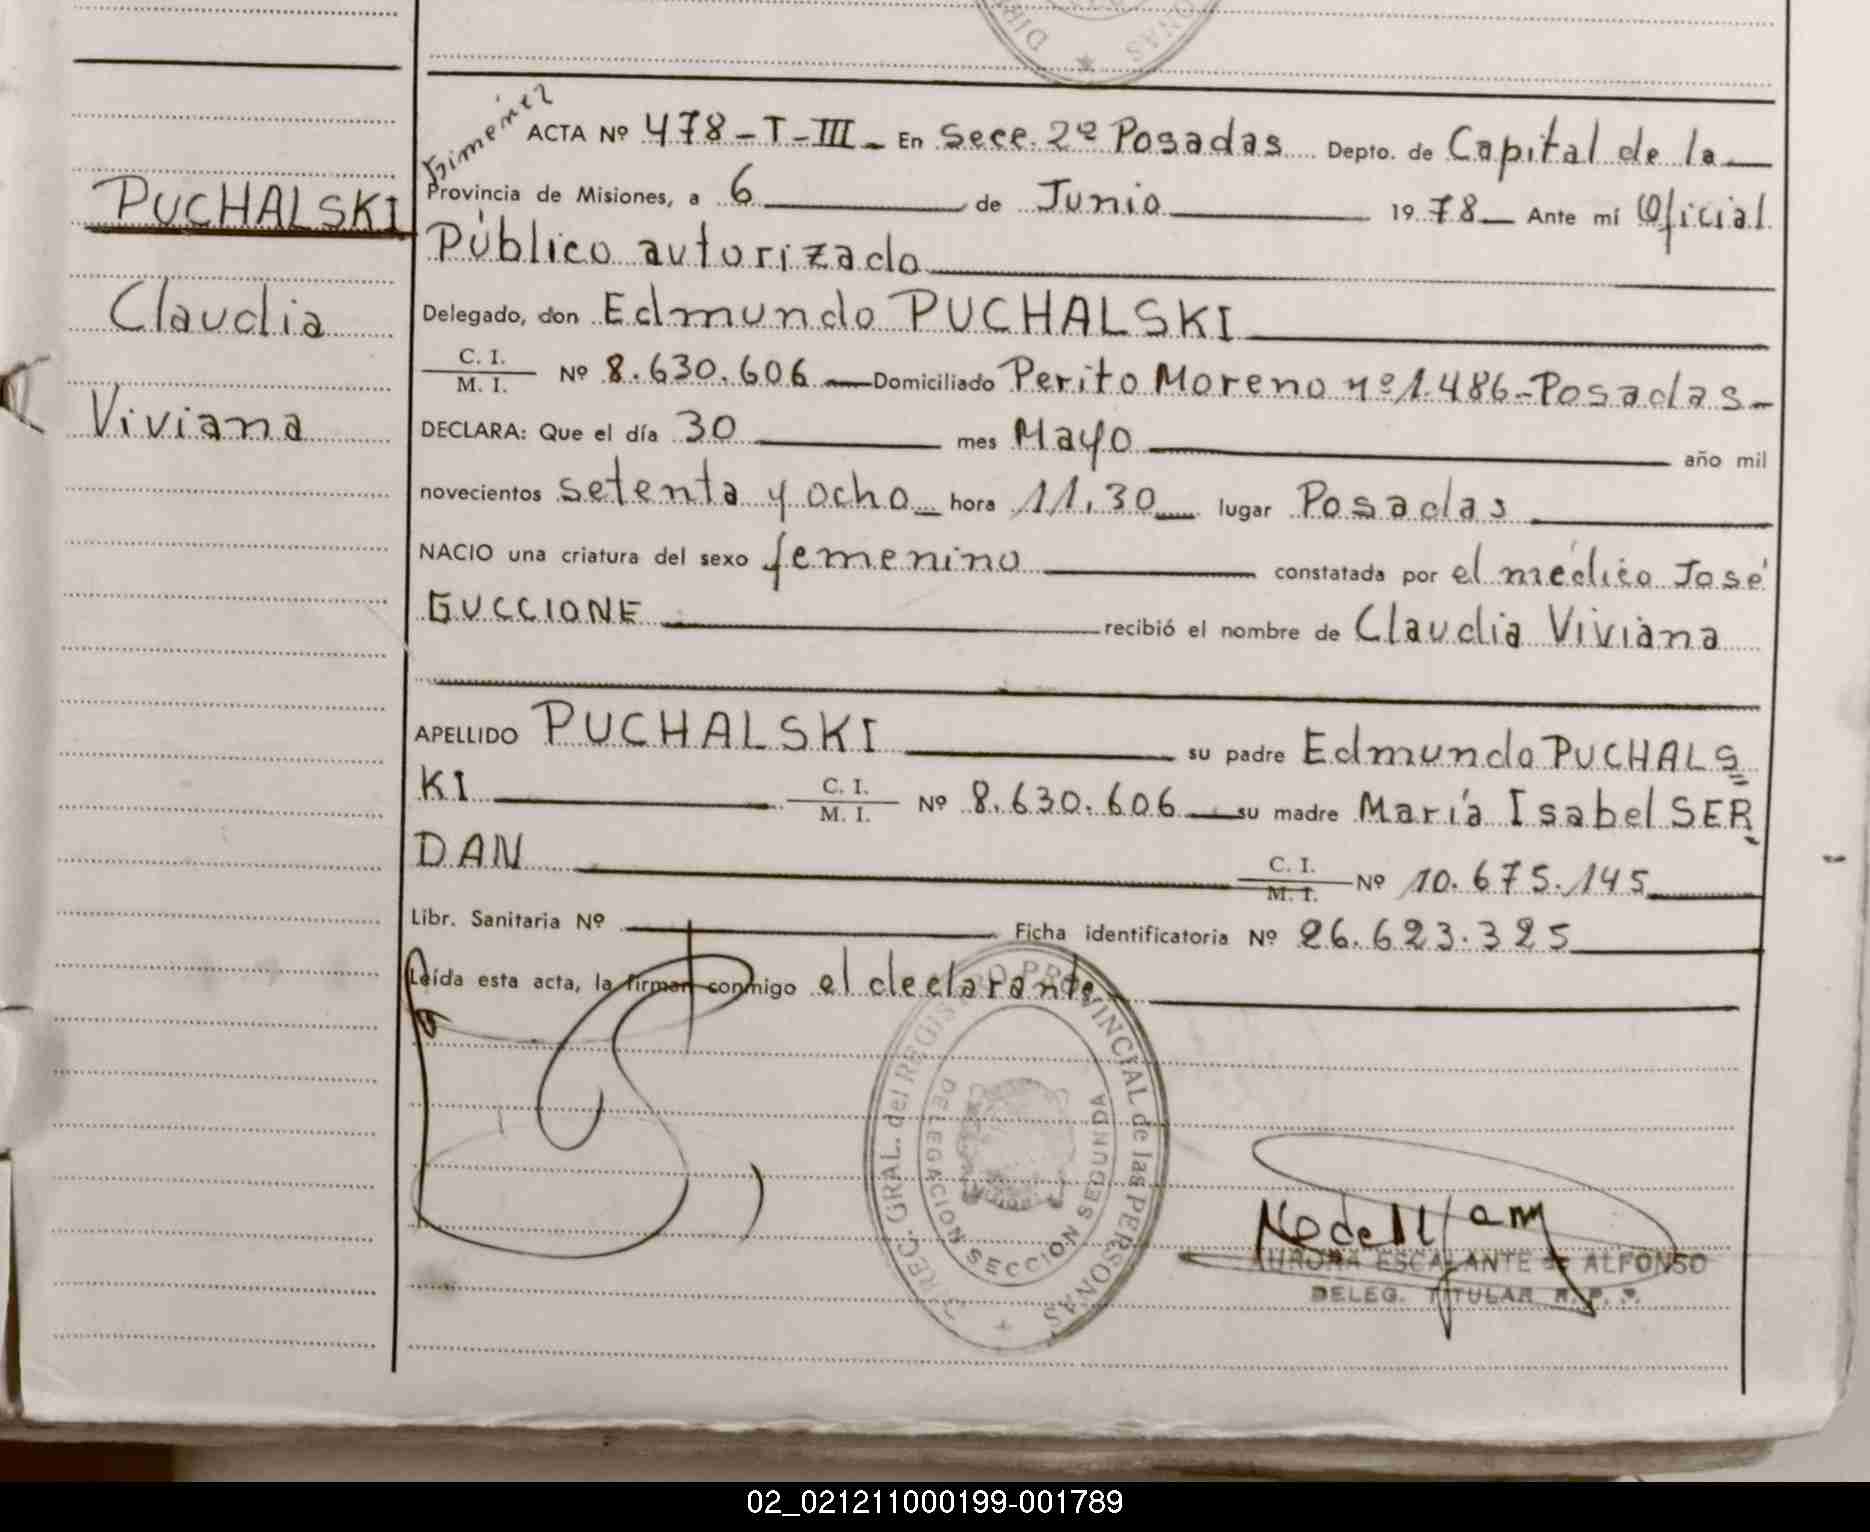 ACTA Nº 478-T-III- En Secc. 2º Posadas Depto. de Capital de la
Provincia de Misiones, a 6 de Junio 1978 Ante mí Oficial
PUCHALSKI
Público autorizado
Claudia
Delegado, don Edmundo PUCHALSKI
C. I.
M. I. Nº 8.630.606 Domiciliado Perito Moreno nº 1.486-Posadas-
Viviana
DECLARA: Que el día 30 mes Mayo año mil
novecientos setenta y ocho hora 11,30 lugar Posadas
NACIO una criatura del sexo femenino constatada por el médico José
GUCCIONE recibió el nombre de Claudia Viviana
APELLIDO PUCHALSKI su padre Edmundo PUCHALS
KI C. I. M. I. Nº 8.630.606 su madre María Isabel SER
DAN C. I. M. I. Nº 10.675.145
Libr. Sanitaria Nº Ficha identificatoria Nº 26.623.325
Leída esta acta, la firman conmigo el declarante
DIREC. GRAL. del REGISTRO PROVINCIAL de las PERSONAS
DELEGACION SECCION SEGUNDA
AURORA ESCALANTE de ALFONSO
DELEG. TITULAR R. P. P.
02_021211000199-001789